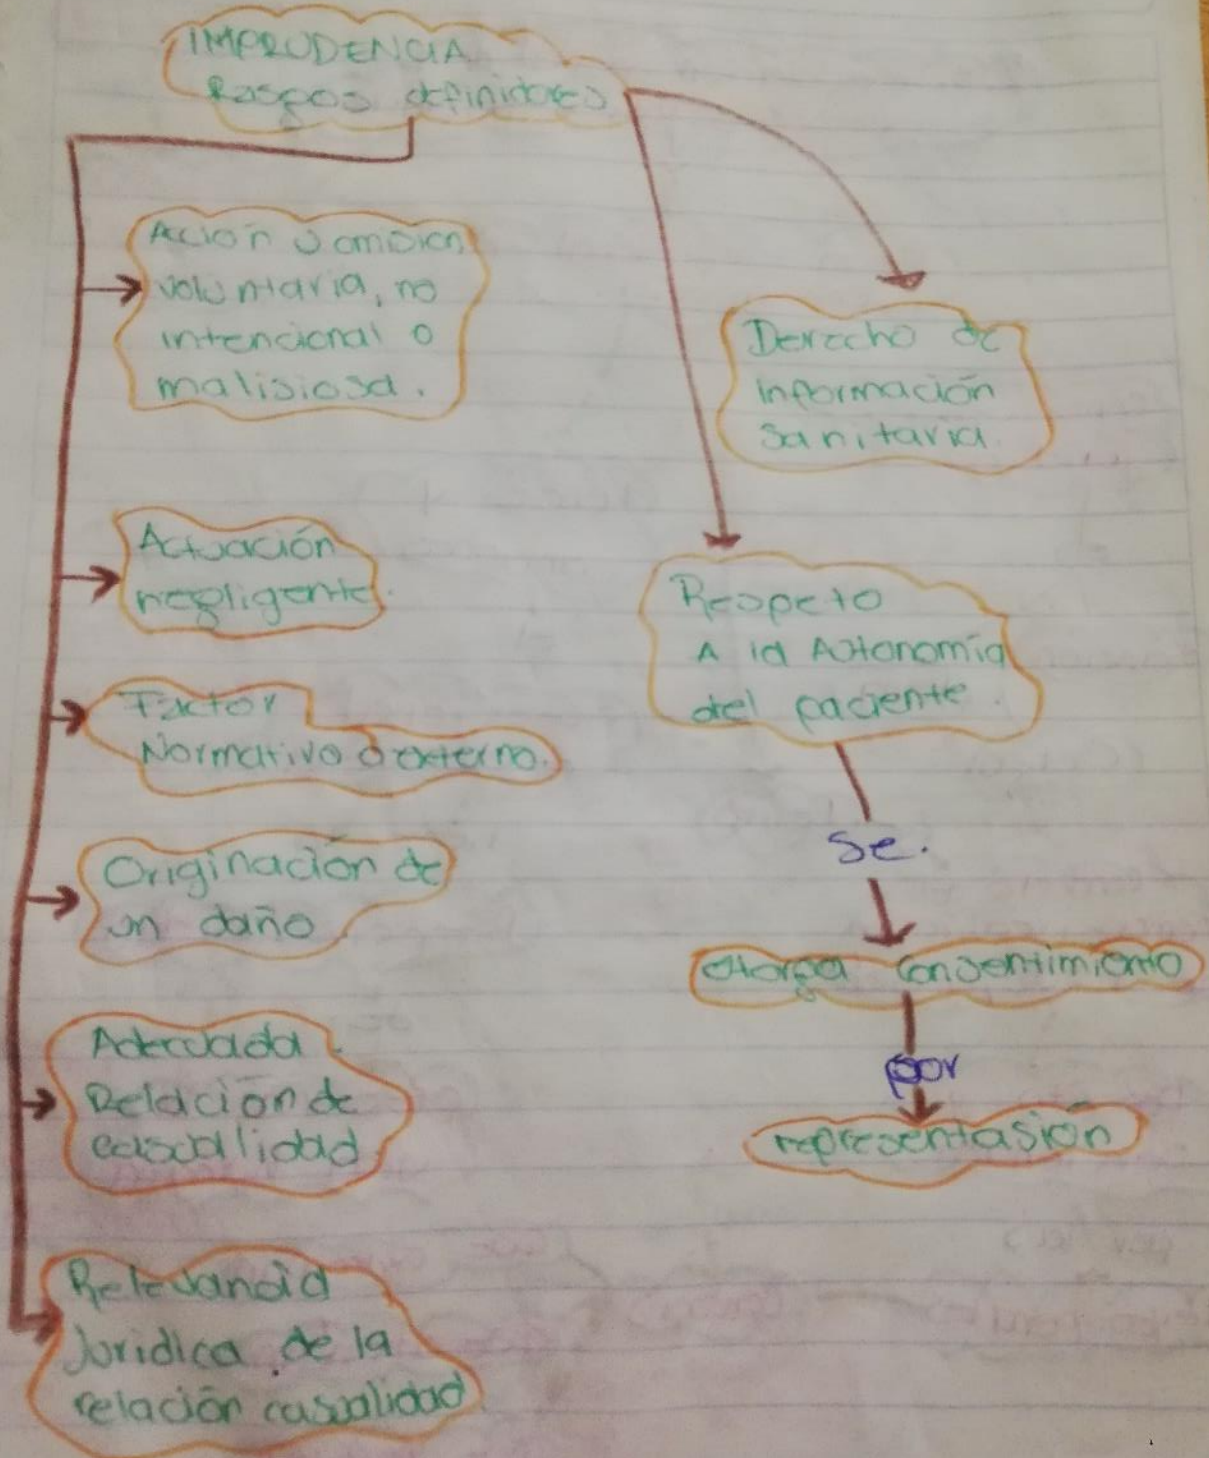 IMPRUDENCIA
Rasgos definidores
Acción u omision
voluntaria, no
intencional o
malisiosa.
Actuación
negligente.
Factor
Normativo o externo.
Originación de
un daño
Adecuada
Relación de
casualidad
Relevancia
Juridica de la
relación casualidad
Derecho de
Información
Sanitaria
Respeto
A la Autonomía
del paciente.
se.
otorga consentimiento
por
representasión